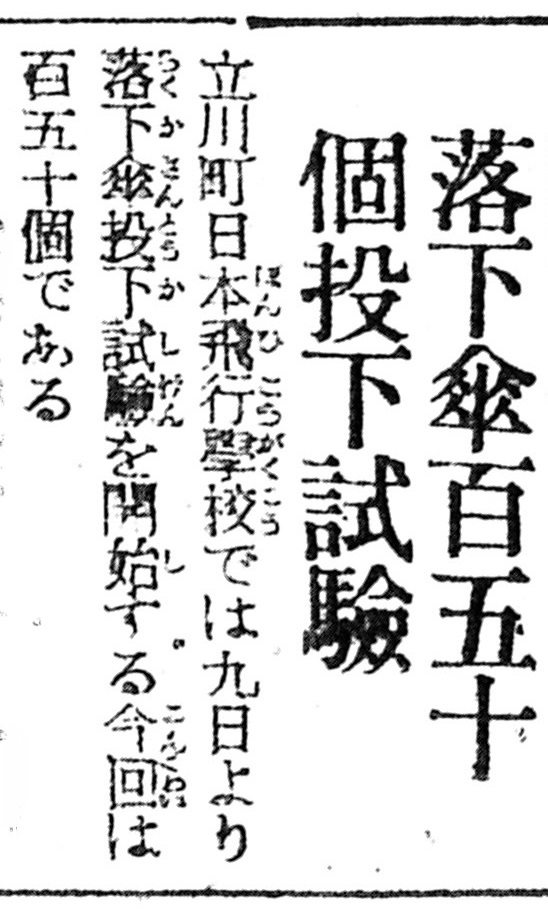 落下傘百五十
個投下試驗
立川町日本飛行學校では九日より
落下傘投下試驗を開始する今回は
百五十個である